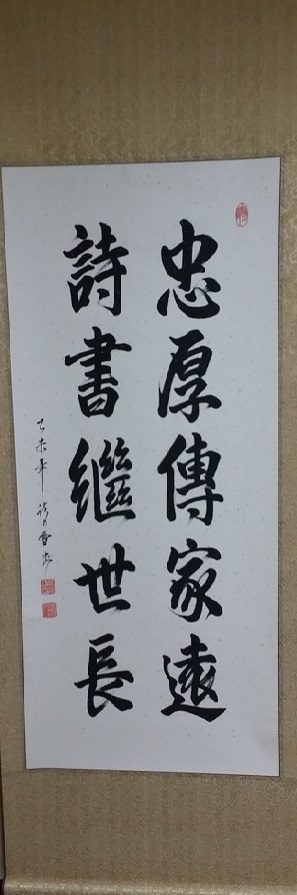 忠厚傳家遠
詩書繼世長
乙未年